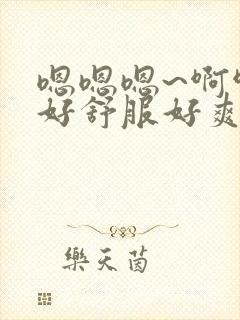 嗯嗯嗯~啊
好舒服好爽
樂天茵